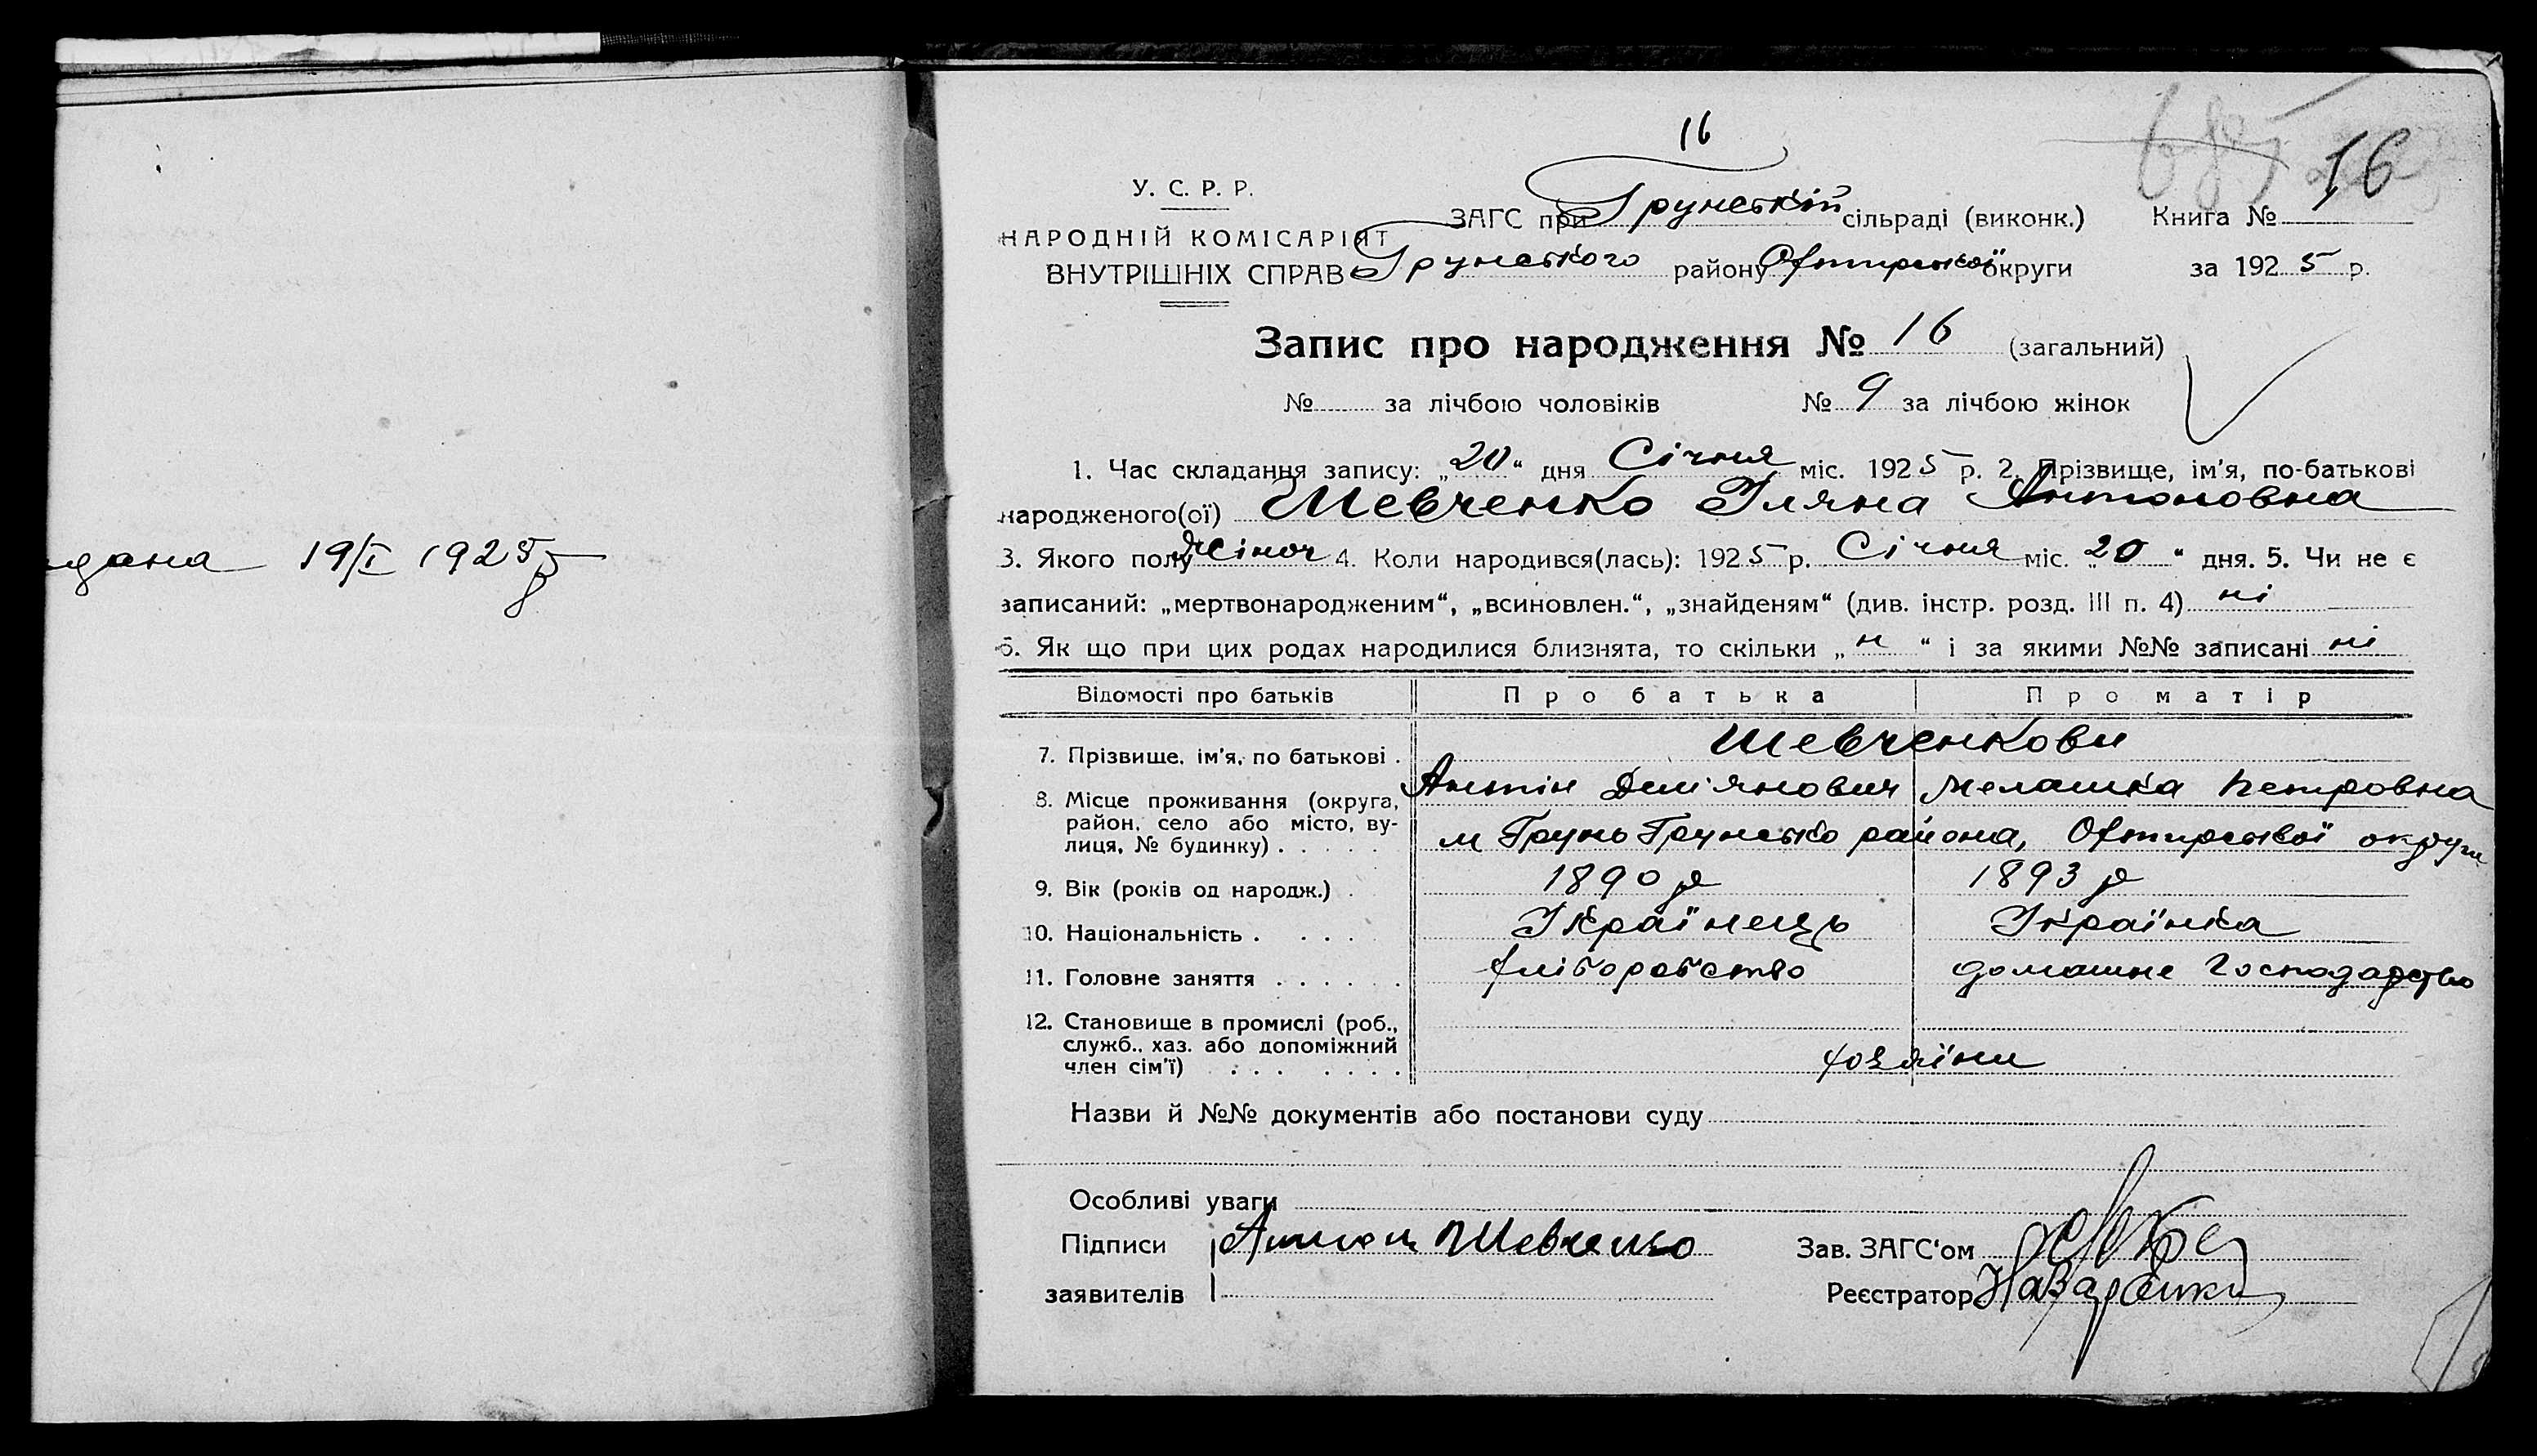 дана 19/I 1925 р
16
685 16
У. С. Р. Р.
НАРОДНІЙ КОМІСАРІЯТ
ВНУТРІШНІХ СПРАВ
ЗАГС при Грунській сільраді (виконк.) Книга №
Грунського району Охтирської округи за 1925 р.
Запис про народження № 16 (загальний)
№ за лічбою чоловіків № 9 за лічбою жінок
1. Час складання запису: „20“ дня Січня міс. 1925 р. 2. Прізвище, ім'я, по-батькові
народженого(ої) Шевченко Уляна Антоновна
3. Якого полу жіноч 4. Коли народився(лась): 1925 р. Січня міс. „20“ дня. 5. Чи не є
записаний: „мертвонародженим“, „всиновлен.“, „знайденям“ (див. інстр. розд. III п. 4) ні
6. Як що при цих родах народилися близнята, то скільки „н“ і за якими №№ записані ні
Відомості про батьків Про батька Про матір
Шевченкови
7. Прізвище, ім'я, по батькові .
Антін Дем'янович Мелашка Петровна
8. Місце проживання (округа,
район, село або місто, ву-
лиця, № будинку) . . . . .
м Грунь Грунсько района, Охтирської округи
9. Вік (років од народж.) . 1890 р 1893 р
10. Національність . . . . Українець Українка
11. Головне заняття . . . . . . хліборобство домашне господарство
12. Становище в промислі (роб.,
служб., хаз. або допоміжний
член сім'ї) . . . . . . .
хозяіни
Назви й №№ документів або постанови суду
Особливі уваги
Підписи Шевченко Зав. ЗАГС'ом
заявителів Реєстратор